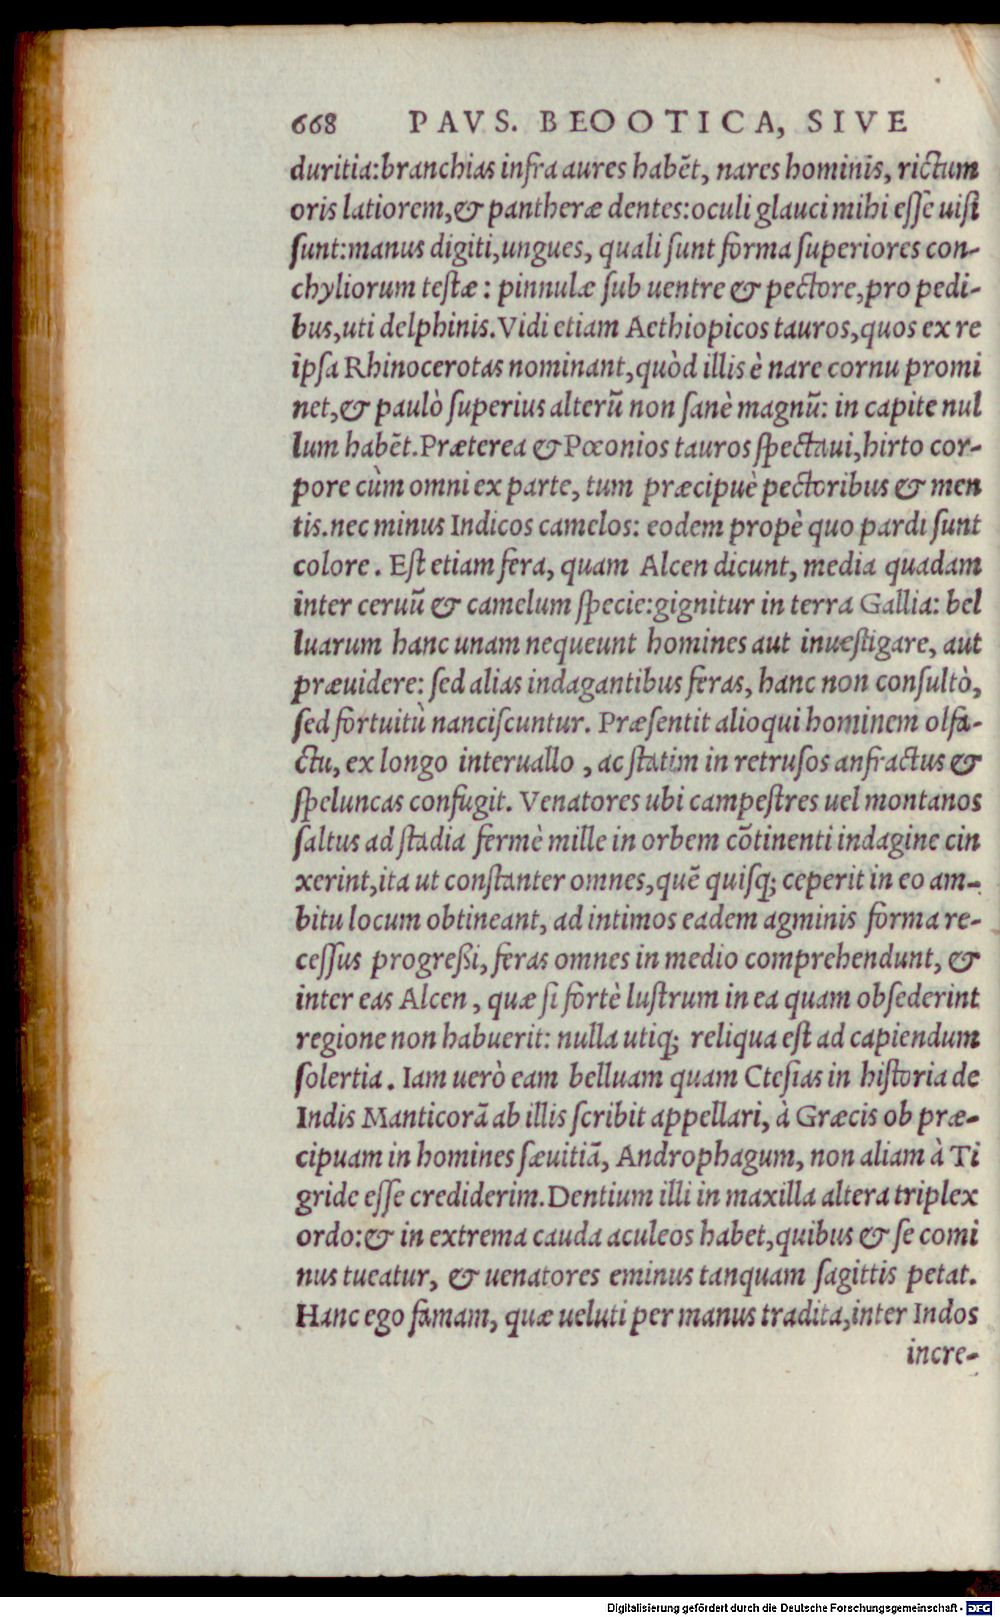 668 PAVS. BEOOTICA, SIVE
duritia:branchias infra aures habẽt, nares hominis, rictum
oris latiorem,& pantheræ dentes:oculi glauci mihi eſſe uiſi
ſunt:manus digiti,ungues, quali ſunt forma ſuperiores con-
chyliorum teſtæ: pinnulæ ſub uentre & pectore,pro pedi-
bus,uti delphinis.Vidi etiam Aethiopicos tauros,quos ex re
ipſa Rhinocerotas nominant,quòd illis è nare cornu promi
net,& paulò ſuperius alterũ non ſanè magnũ: in capite nul
lum habẽt.Præterea & Pœonios tauros ſpectaui,hirto cor-
pore cùm omni ex parte, tum præcipuè pectoribus & men
tis.nec minus Indicos camelos: eodem propè quo pardi ſunt
colore. Eſt etiam fera, quam Alcen dicunt, media quadam
inter ceruũ & camelum ſpecie:gignitur in terra Gallia: bel
luarum hanc unam nequeunt homines aut inueſtigare, aut
præuidere: ſed alias indagantibus feras, hanc non conſultò,
ſed fortuitù nanciſcuntur. Præſentit alioqui hominem olfa-
ctu, ex longo interuallo, ac ſtatim in retruſos anfractus &
ſpeluncas confugit. Venatores ubi campeſtres uel montanos
ſaltus ad ſtadia fermè mille in orbem cõtinenti indagine cin
xerint,ita ut conſtanter omnes,quẽ quiſq; ceperit in eo am-
bitu locum obtineant, ad intimos eadem agminis forma re-
ceſſus progreßi, feras omnes in medio comprehendunt, &
inter eas Alcen, quæ ſi fortè luſtrum in ea quam obſederint
regione non habuerit: nulla utiq; reliqua eſt ad capiendum
ſolertia. Iam uerò eam belluam quam Cteſias in hiſtoria de
Indis Manticorã ab illis ſcribit appellari, à Græcis ob præ-
cipuam in homines ſæuitiã, Androphagum, non aliam à Ti
gride eſſe crediderim.Dentium illi in maxilla altera triplex
ordo:& in extrema cauda aculeos habet,quibus & ſe comi
nus tueatur, & uenatores eminus tanquam ſagittis petat.
Hanc ego famam, quæ ueluti per manus tradita,inter Indos
incre-
Digitalisierung gefördert durch die Deutsche Forschungsgemeinschaft - DFG